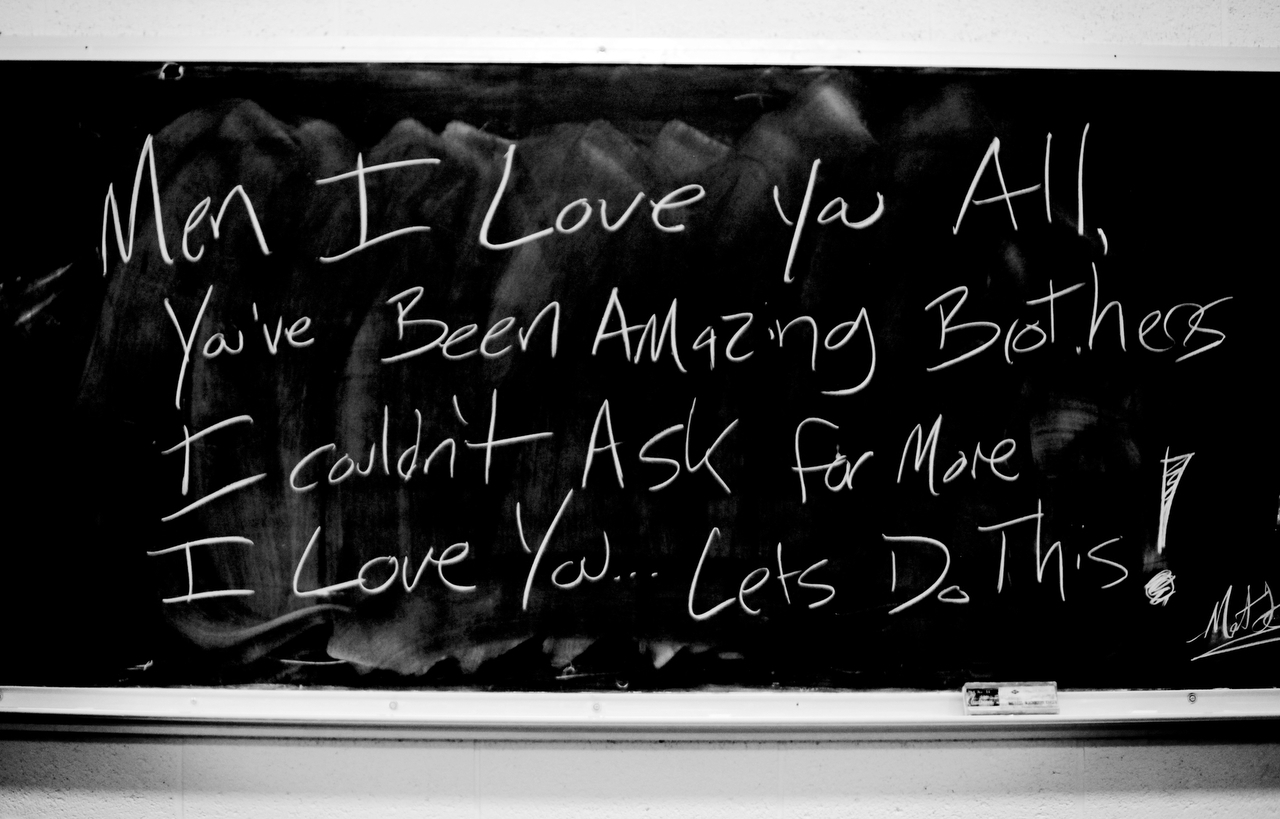 Men I Love you All,
You've Been Amazing Brothers
I couldn't Ask for More
I Love You... Lets Do This!
Matt